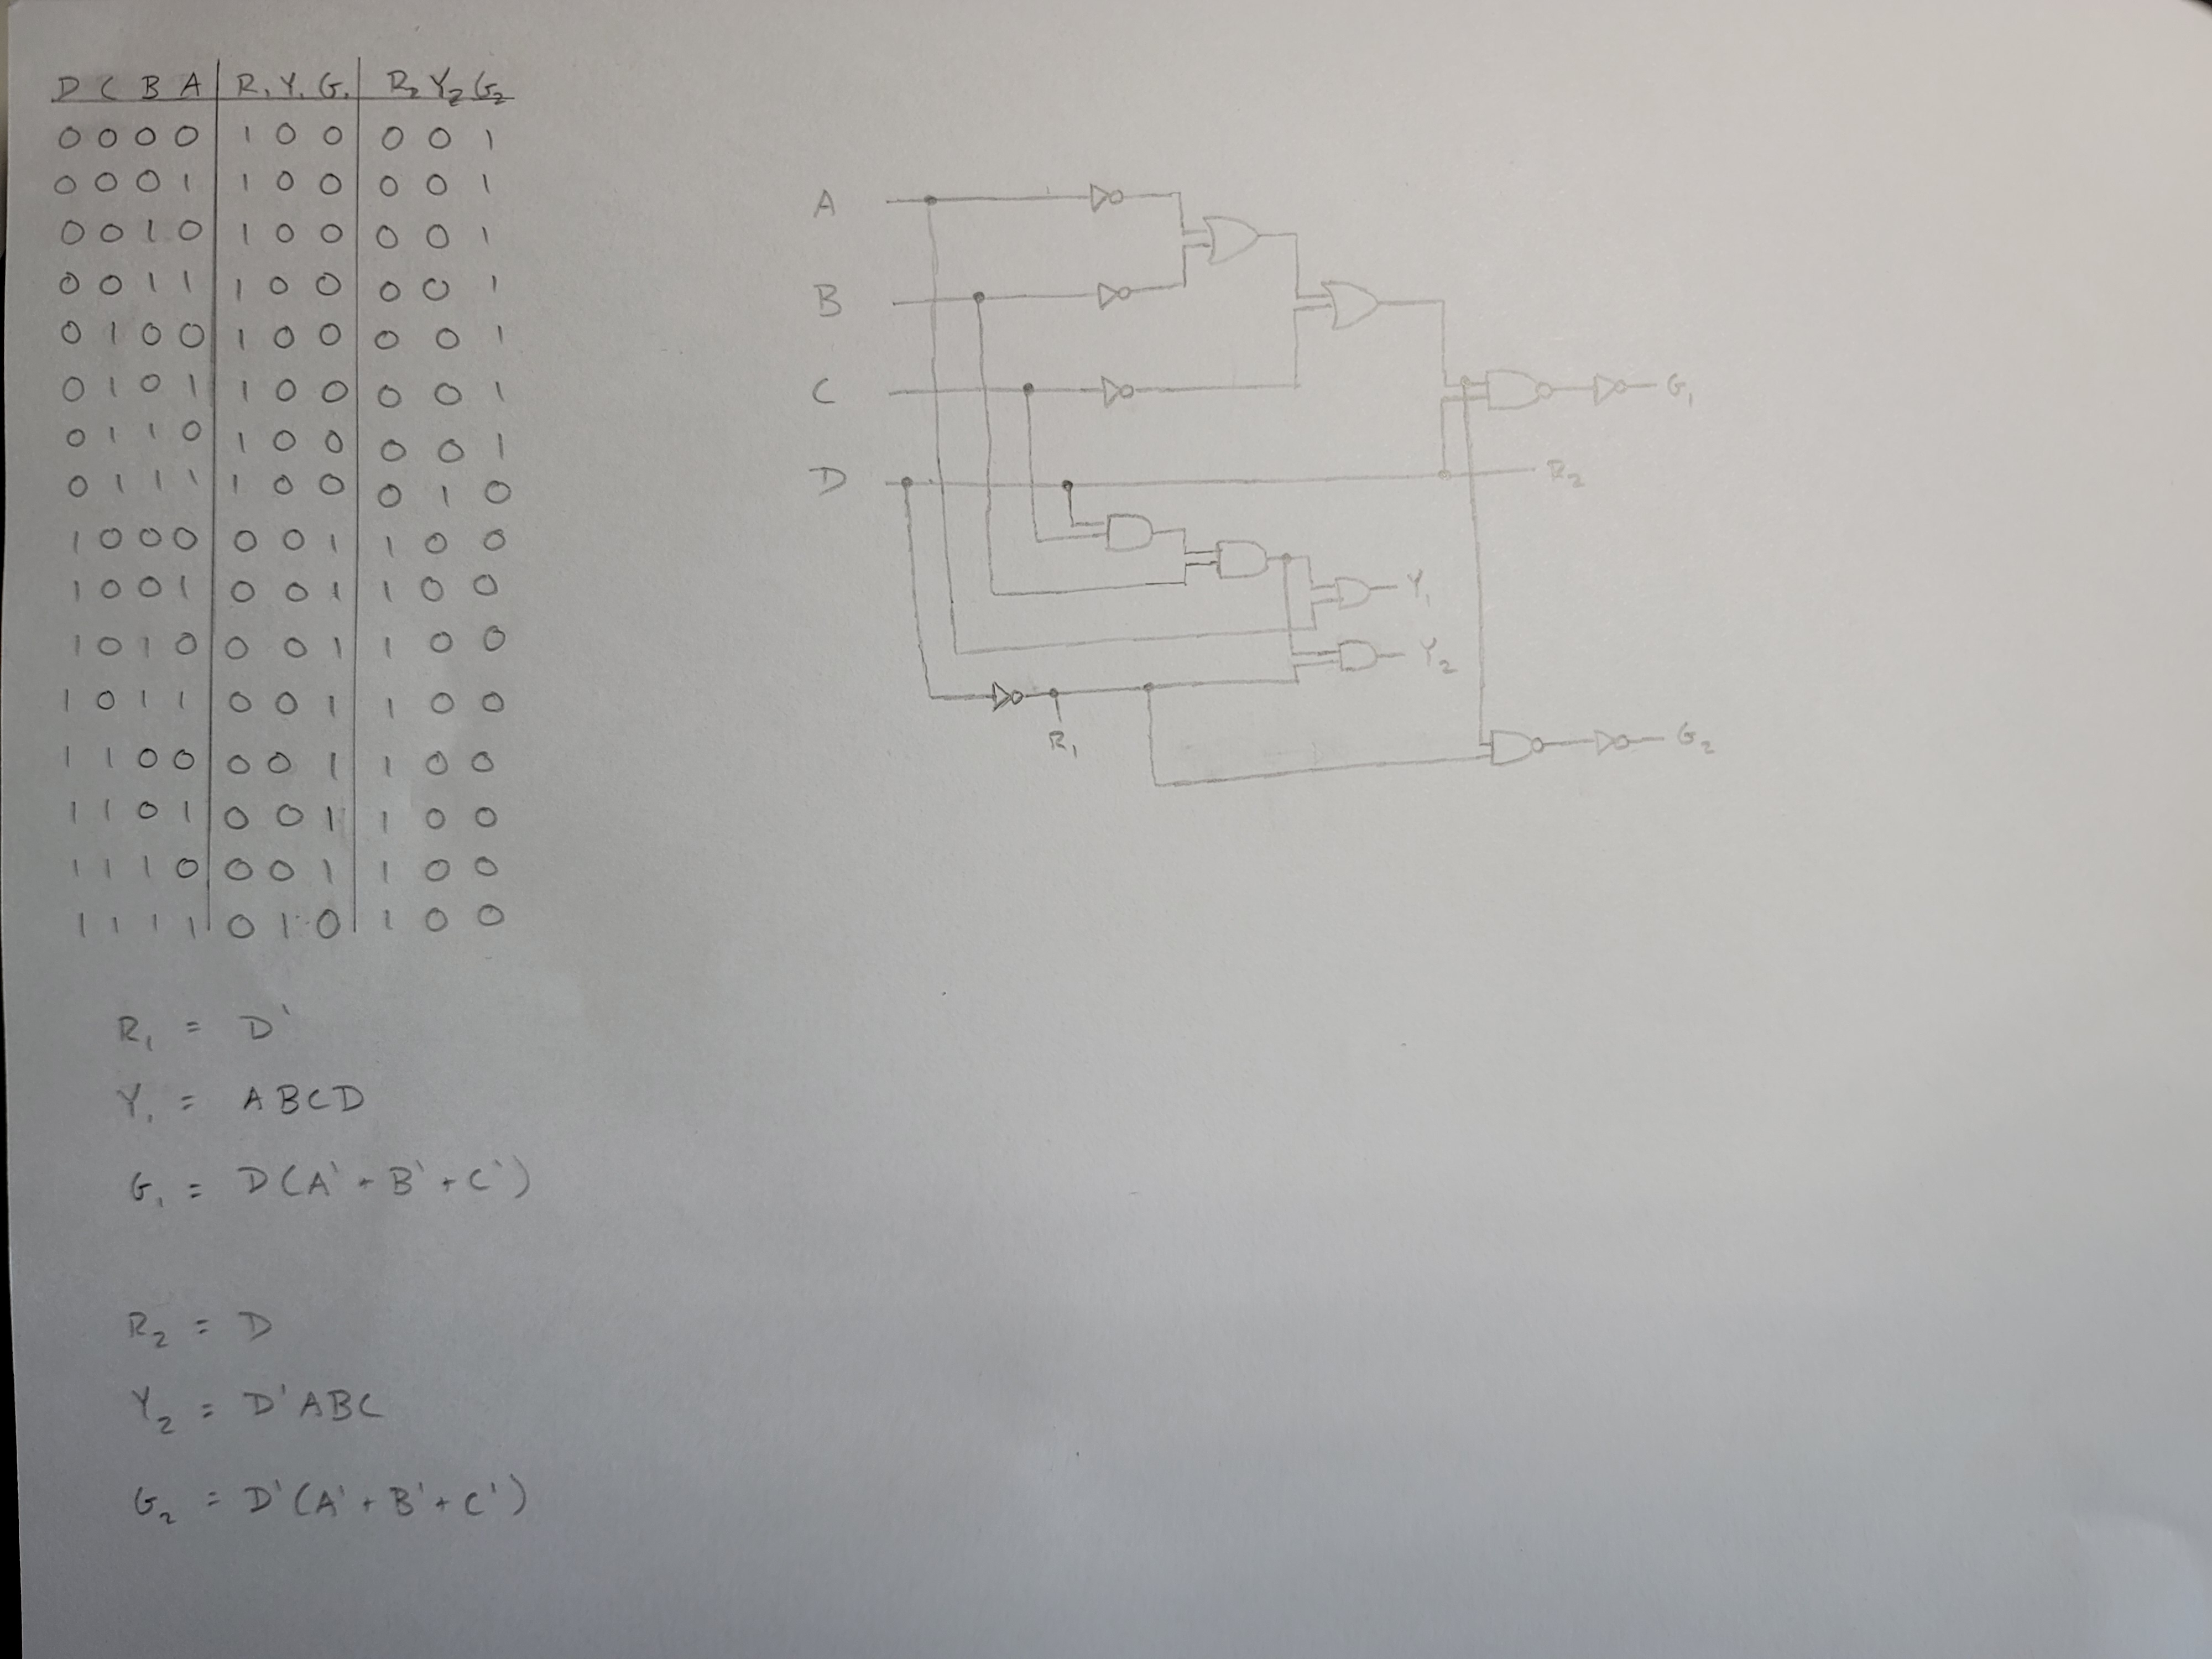 D C B A R₁ Y₁ G₁ R₂ Y₂ G₂
0 0 0 0 1 0 0 0 0 1
0 0 0 1 1 0 0 0 0 1
0 0 1 0 1 0 0 0 0 1
0 0 1 1 1 0 0 0 0 1
0 1 0 0 1 0 0 0 0 1
0 1 0 1 1 0 0 0 0 1
0 1 1 0 1 0 0 0 0 1
0 1 1 1 1 0 0 0 1 0
1 0 0 0 0 0 1 1 0 0
1 0 0 1 0 0 1 1 0 0
1 0 1 0 0 0 1 1 0 0
1 0 1 1 0 0 1 1 0 0
1 1 0 0 0 0 1 1 0 0
1 1 0 1 0 0 1 1 0 0
1 1 1 0 0 0 1 1 0 0
1 1 1 1 0 1 0 1 0 0
R₁ = D'
Y₁ = ABCD
G₁ = D(A' + B' + C')
R₂ = D
Y₂ = D'ABC
G₂ = D'(A' + B' + C')
A
B
C
G₁
D
R₂
Y₁
Y₂
R₁
G₂